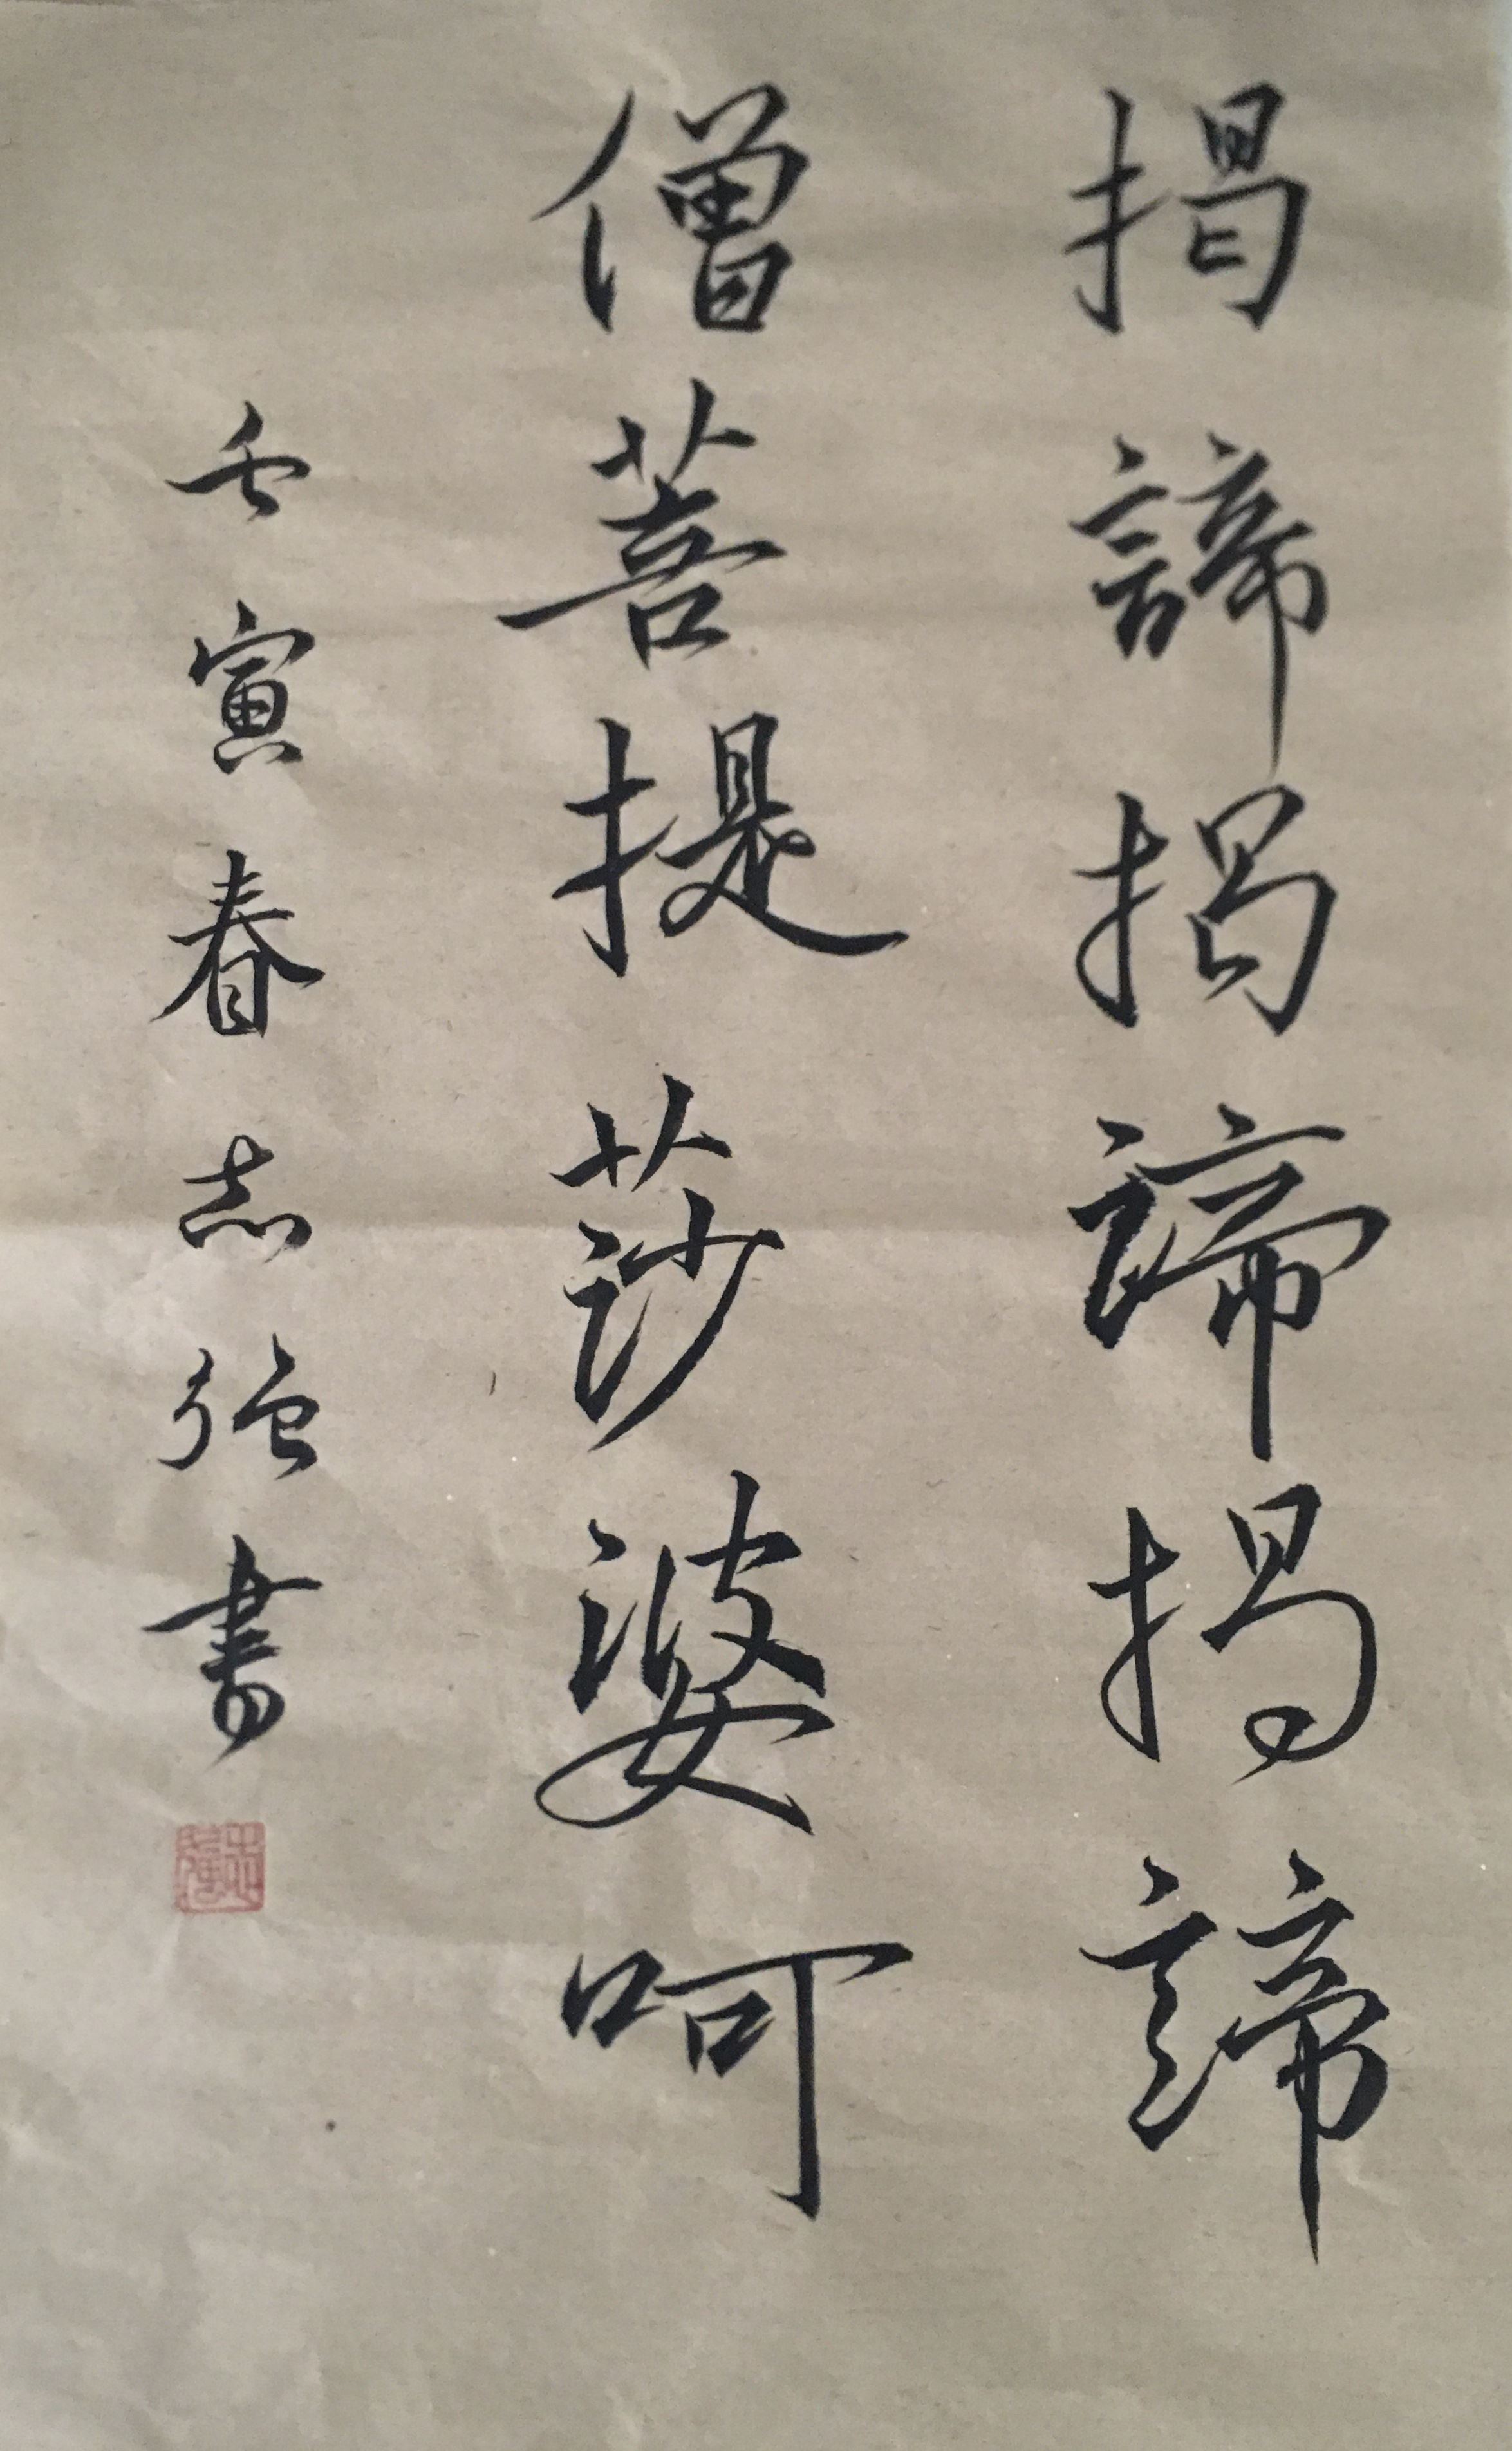 揭諦揭諦揭諦
僧菩提莎婆呵
壬寅春志强書
志強